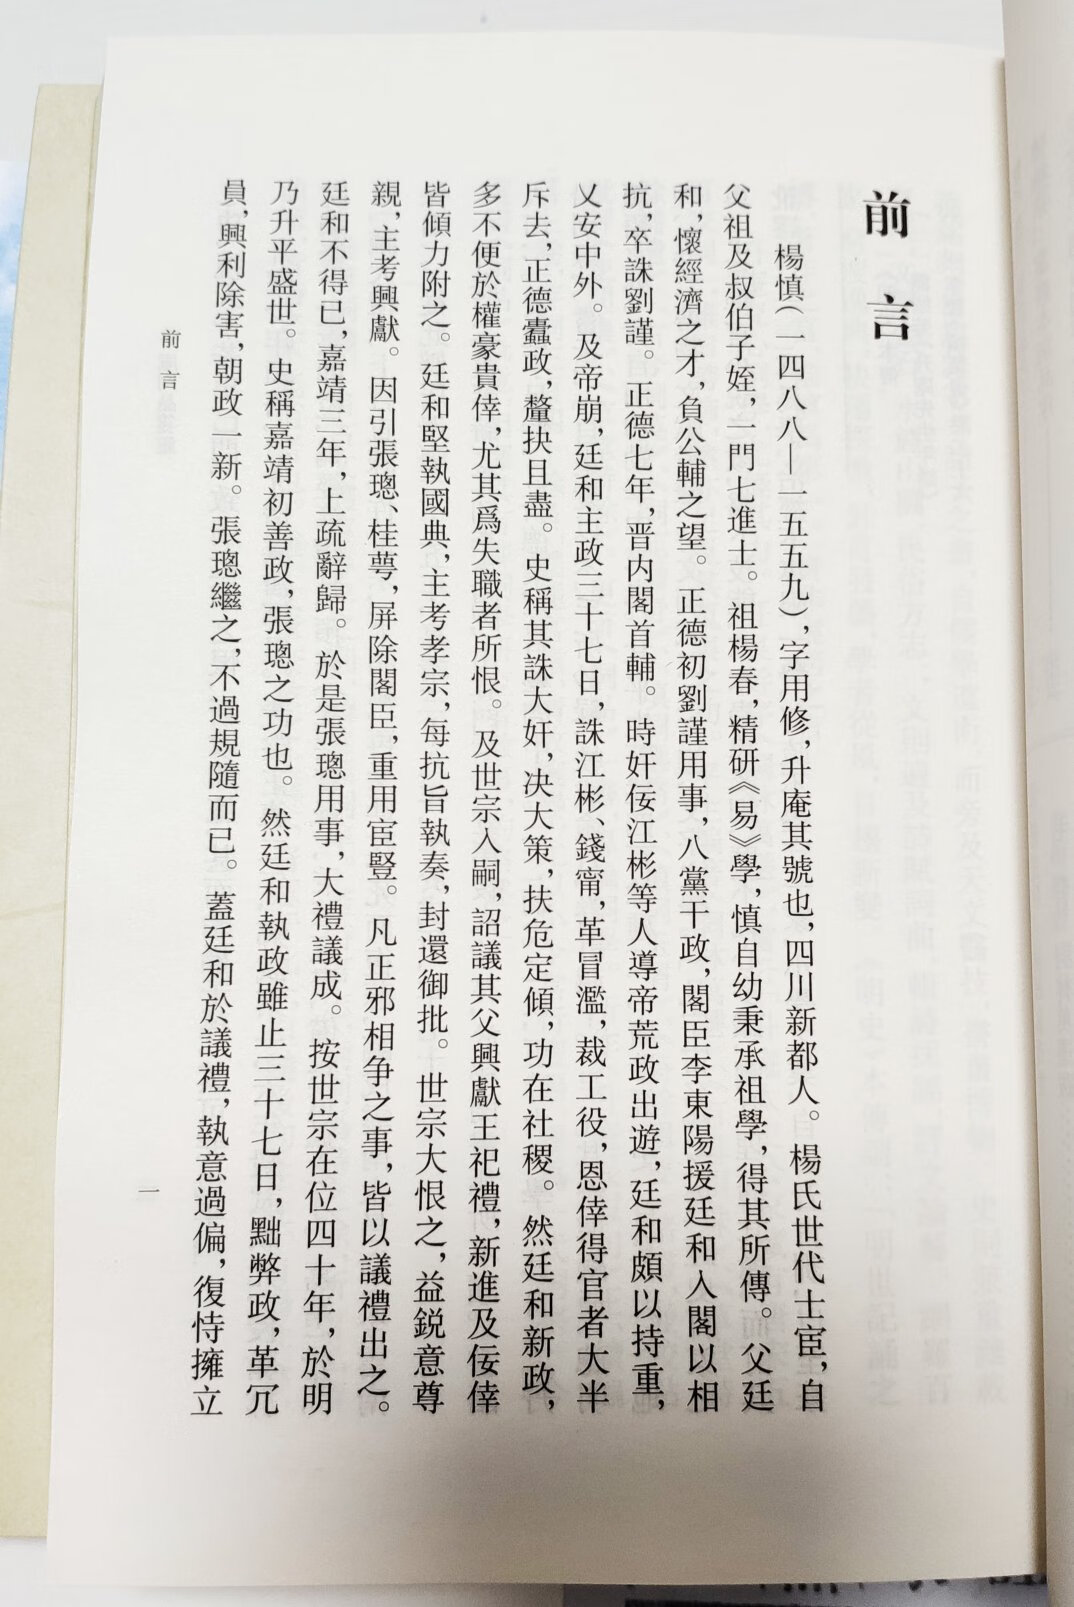 前言
楊慎（一四八八—一五五九），字用修，升庵其號也，四川新都人。楊氏世代士宦，自
父祖及叔伯子姪，一門七進士。祖楊春，精研《易》學，慎自幼秉承祖學，得其所傳。父廷
和，懷經濟之才，負公輔之望。正德初劉謹用事，八黨干政，閣臣李東陽援廷和入閣以相
抗，卒誅劉謹。正德七年，晋内閣首輔。時奸佞江彬等人導帝荒政出遊，廷和頗以持重，
乂安中外。及帝崩，廷和主政三十七日，誅江彬、錢甯，革冒濫，裁工役，恩倖得官者大半
斥去，正德蠹政，釐抉且盡。史稱其誅大奸，决大策，扶危定傾，功在社稷。然廷和新政，
多不便於權豪貴倖，尤其爲失職者所恨。及世宗入嗣，詔議其父興獻王祀禮，新進及佞倖
皆傾力附之。廷和堅執國典，主考孝宗，每抗旨執奏，封還御批。世宗大恨之，益鋭意尊
親，主考興獻。因引張璁、桂萼，屏除閣臣，重用宦豎。凡正邪相争之事，皆以議禮出之。
廷和不得已，嘉靖三年，上疏辭歸。於是張璁用事，大禮議成。按世宗在位四十年，於明
乃升平盛世。史稱嘉靖初善政，張璁之功也。然廷和執政雖止三十七日，黜弊政，革冗
員，興利除害，朝政一新。張璁繼之，不過規隨而已。蓋廷和於議禮，執意過偏，復恃擁立
前言
一